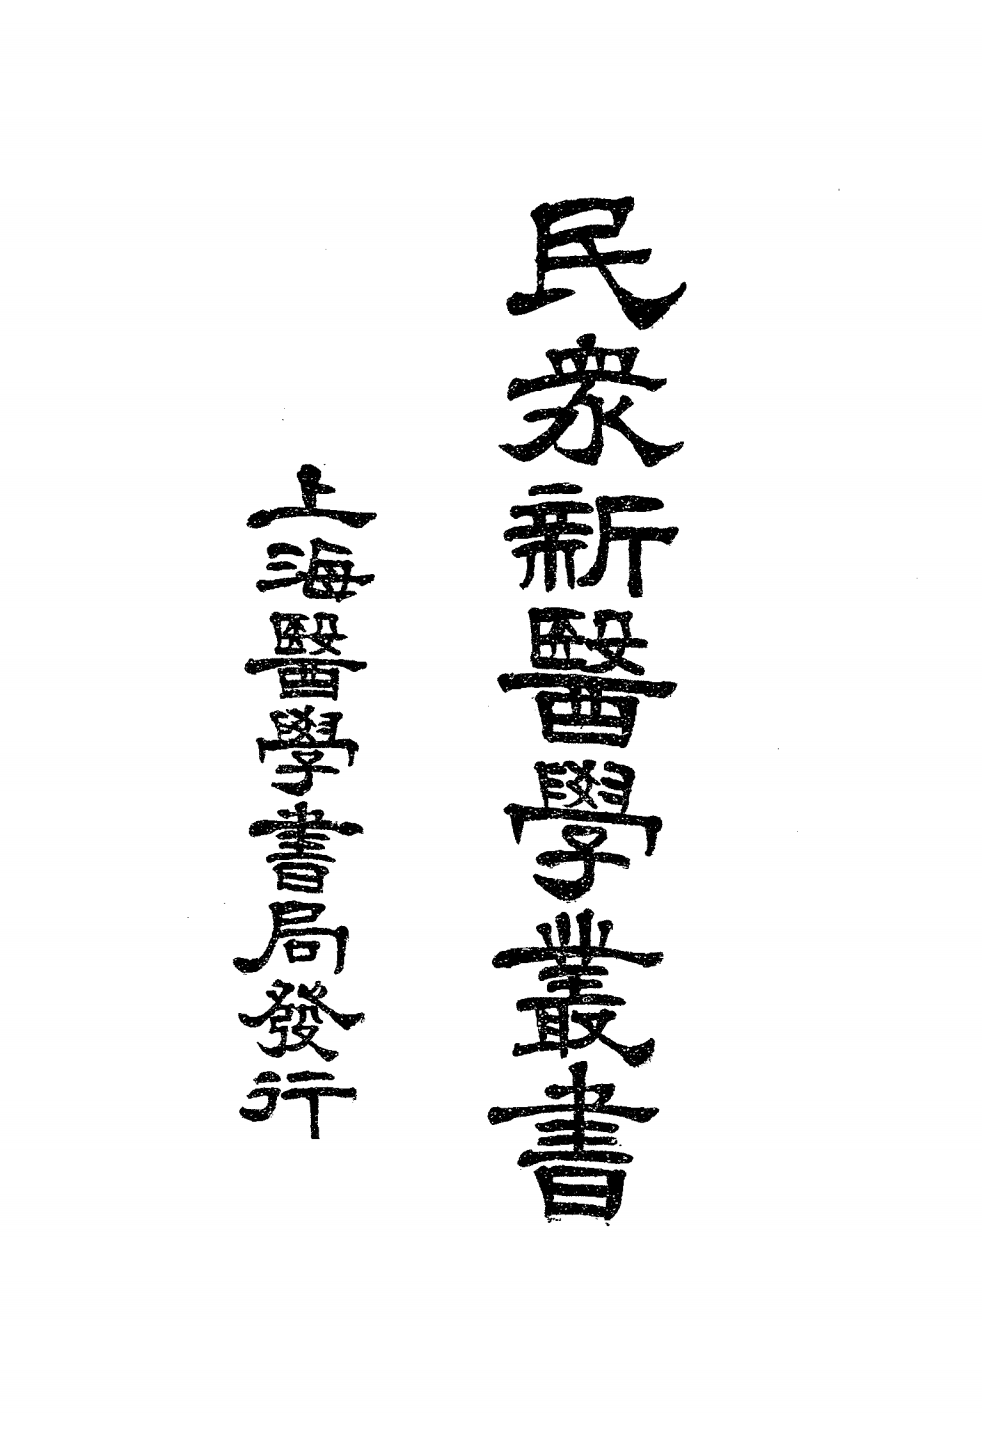 民眾新醫學叢書
上海醫學書局發行